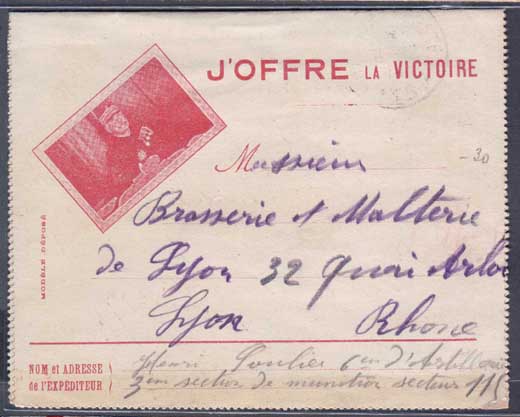 J'OFFRE LA VICTOIRE
Monsieur
- 30
Brasserie & Malterie
de Lyon 32 Quai Arloi
Lyon Rhone
MODÈLE DÉPOSÉ
NOM et ADRESSE
de l'EXPÉDITEUR
Henri 6em d'Artillerie
3em section de munition secteur 115